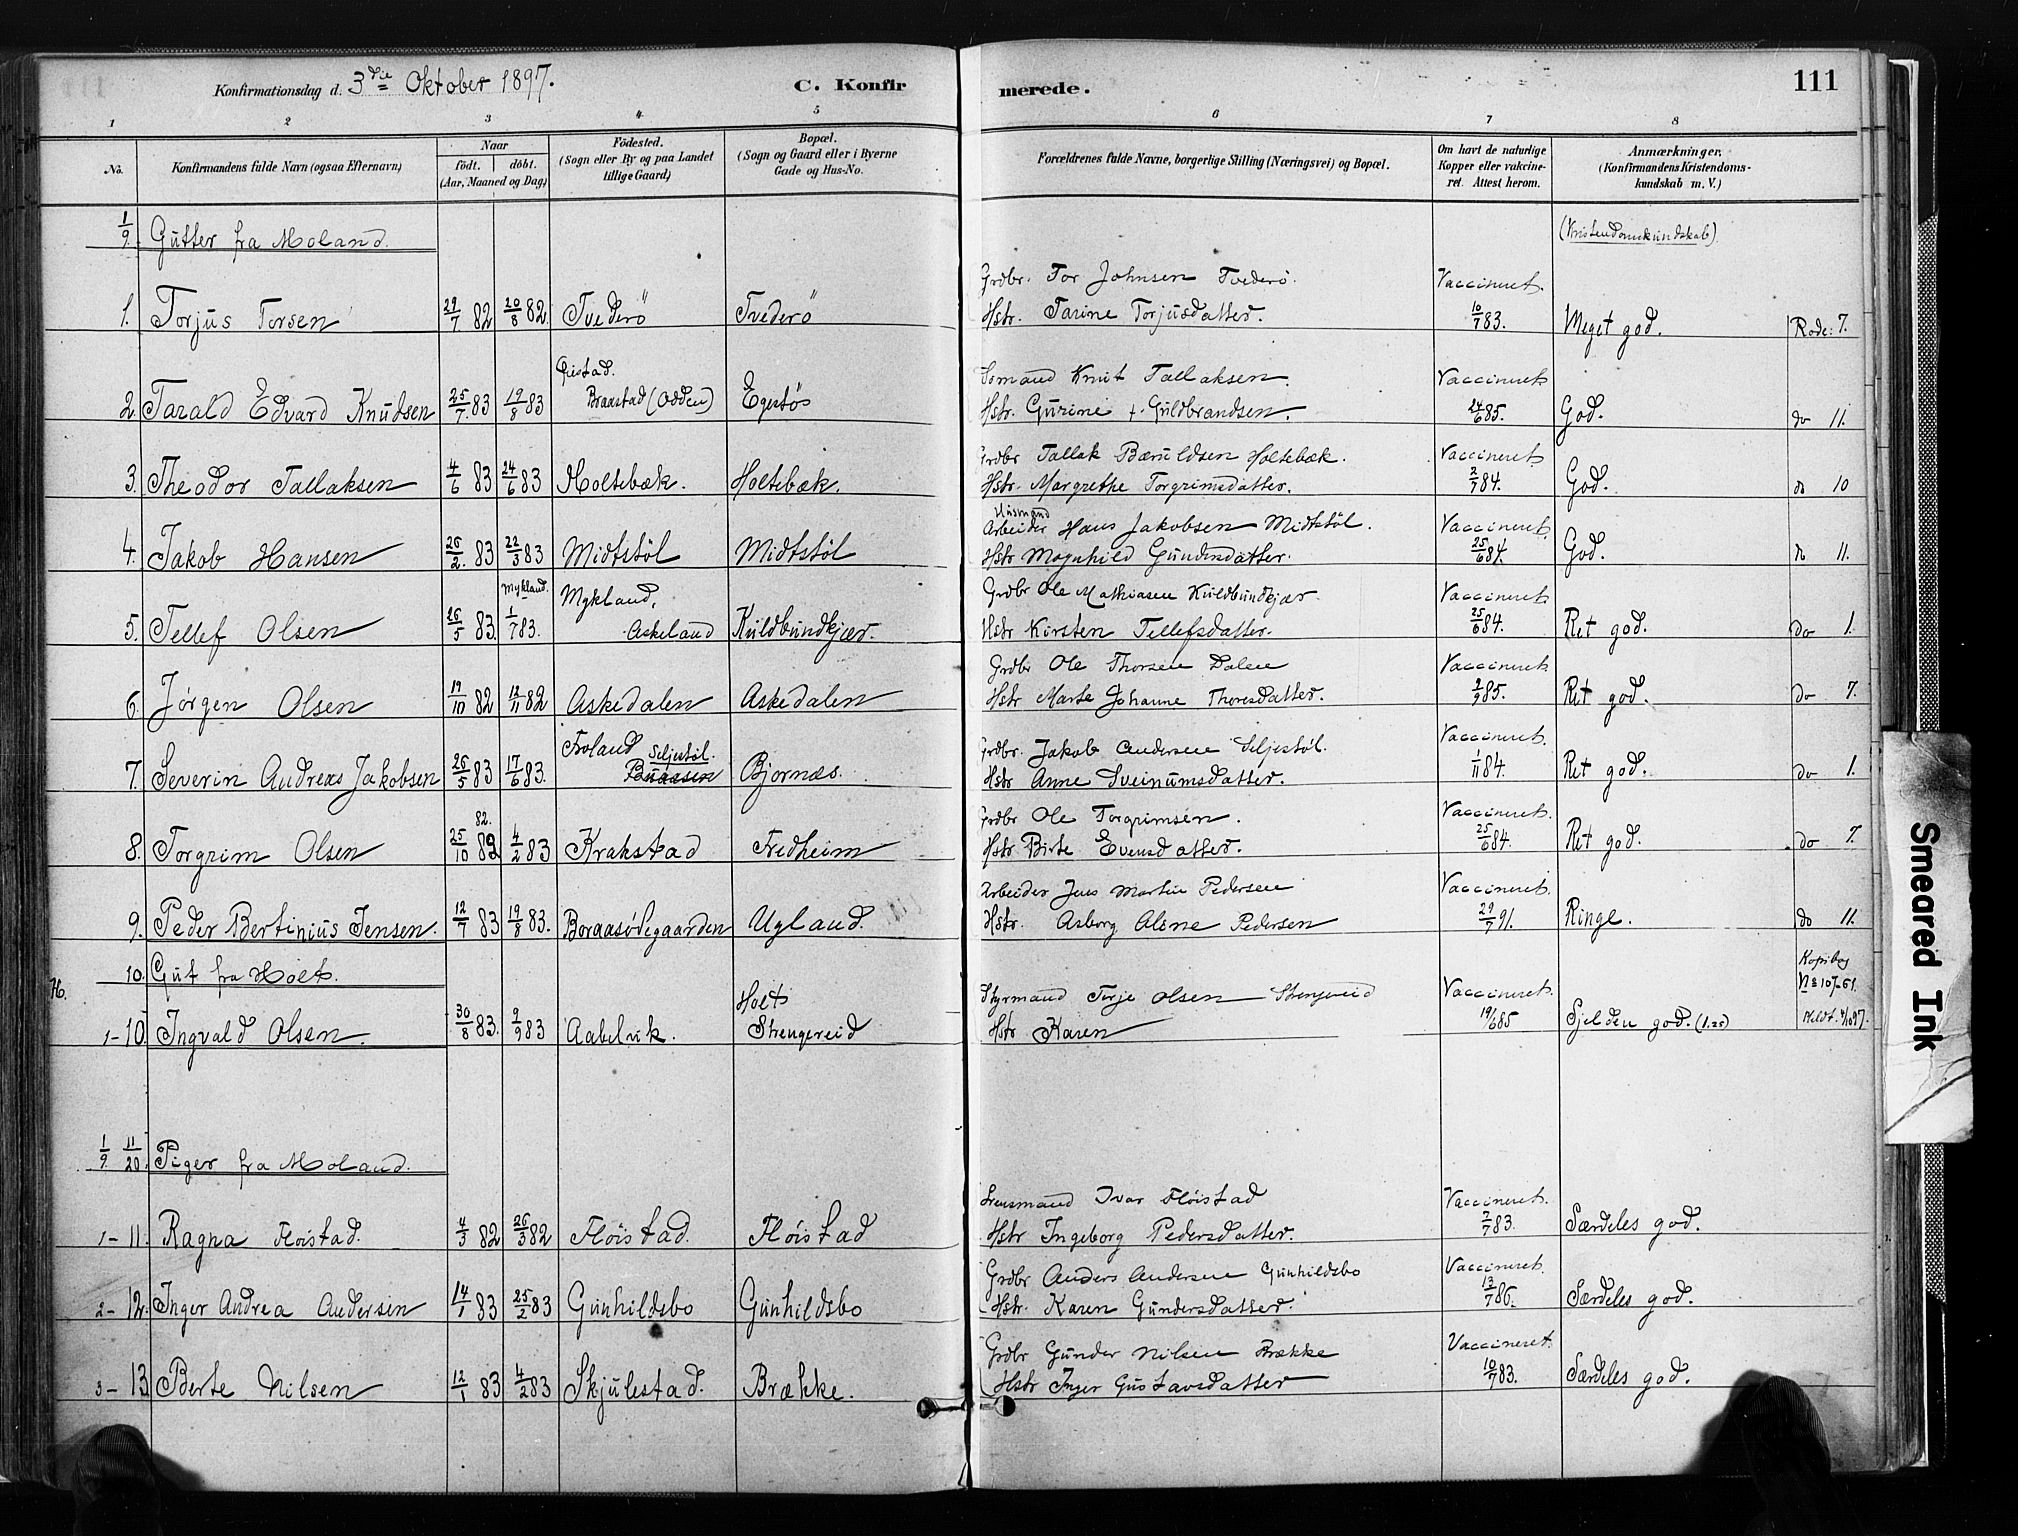 Konfirmationsdag d. 3die Oktober 1897. C. Konfirmerede. 111
1 2 3 4 5 6 7 8
No. Konfirmandens fulde Navn (ogsaa Efternavn) Naar födt. döbt. (Aar, Maaned og Dag) Födested. (Sogn eller By og paa Landet tillige Gaard) Bopæl. (Sogn og Gaard eller i Byerne Gade og Hus-No. Forældrenes fulde Navne, borgerlige Stilling (Næringsvei) og Bopæl. Om havt de naturlige Kopper eller vakcineret. Attest herom. Anmærkninger. (Konfirmandens Kristendomskundskab m. V.)
1/9 Gutter fra Moland. (Kristendomskundskab)
Grdbr. Tor Johnsen Tvederö. Vaccineret.
1. Torjus Torsen 29/7 82 20/8 82 Tvederö Tvederö Hstr. Tarine Torjusdatter. 10/7 83. Meget god. Rode: 7.
Braastad (Odden) Knut Tallaksen. Vaccineret
2. Tarald Edvard Knudsen 25/7 83 19/8 83 Egestøs Hstr. Gurine f. Guldbrandsen. 24/6 85. God. do 11.
Grdbr Tallak Bæruldsen Holtebæk. Vaccineret
3. Theodor Tallaksen 4/6 83 24/6 83 Holtebæk. Holtebæk. Hstr. Margrethe Torgrimsdatter. 2/7 84. God. do 10
Husmand
Arbeider Hans Jakobsen Midtstöl. Vaccineret
4. Jakob Hansen 26/2 83 22/3 83 Midtstöl Midtstöl Hstr Magnhild Gundersdatter. 25/6 84. God. do 11.
Mykland. Mykland, Grdbr Ole Mathiasen Kuldbundkjær. Vaccineret
5. Tellef Olsen 26/5 83. 1/7 83. Askeland Kuldbundkjær. Hstr Kirsten Tellefsdatter. 25/6 84. Ret god. do 1.
Grdbr Ole Thorsen Dalen Vaccineret
6. Jörgen Olsen 19/10 82 12/11 82 Askedalen Askedalen Hstr Marte Johanne Thoresdatter. 2/9 85. Ret god. do 7.
Froland Seljestöl. Grdbr. Jakob Andersen Seljestöl. Vaccineret
7. Severin Andreas Jakobsen 26/5 83 17/6 83. Buaasen Bjornæs. Hstr Anne Sveinumsdatter. 1/11 84. Ret god. do 1.
82. Grdbr Ole Torgrimsen. Vaccineret.
8. Torgrim Olsen 25/10 82 4/2 83 Krakstad Fredheim Hstr Birte Evensdatter. 25/6 84. Ret god. do 7.
Arbeider Jens Martin Pedersen Vaccineret.
9. Peder Bertinius Jensen. 12/7 83 19/8 83. Boraasödegaarden Ugland. Hstr. Asborg Aline Pedersen 29/7 91. Ringe. do 11.
10. Gut fra Holt. Kopibog
H. Holt Styrmand Torje Olsen Strengereid Vaccineret. No 107-61
1-10. Ingvald Olsen. 30/8 83. 9/9 83 Aabelvik. Strengereid Hstr Karen 19/6 85 Sjelden god. (1.25) Meldt. 4/10 97.
1/9 11/20. Piger fra Moland.
Lensmand Ivar Flöistad Vaccineret.
1-11. Ragna Flöistad. 4/3 82 26/3 82 Flöistad. Flöistad Hstr Ingeborg Pedersdatter. 7/7 83. Særdeles god.
Grdbr Anders Andersen Gunhildsbo Vaccineret.
2-12. Inger Andrea Andersen 14/1 83 25/2 83 Gunhildsbo Gunhildsbo Hstr. Karen Gundersdatter. 13/7 86. Særdeles god.
Grdbr Gunder Nilsen Brække Vaccineret.
3-13. Berte Nilsen 12/1 83 4/2 83 Skjulestad. Brække. Hstr Inger Gustavsdatter 10/7 83. Særdeles god.
Smeared Ink